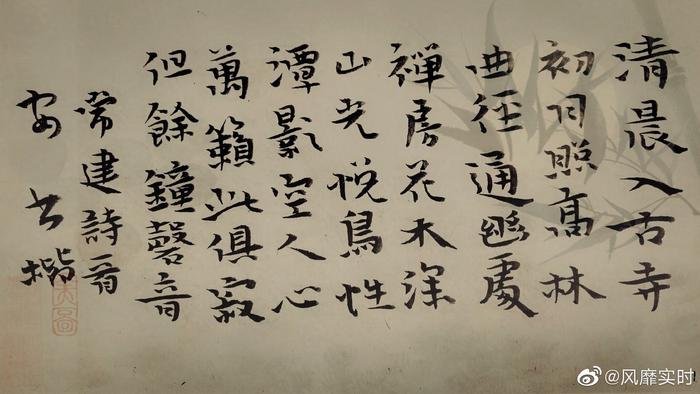 清晨入古寺
初日照高林
曲徑通幽處
禪房花木深
山光悅鳥性
潭影空人心
萬籟此俱寂
但餘鐘磬音
常建詩
楷
@风靡实时